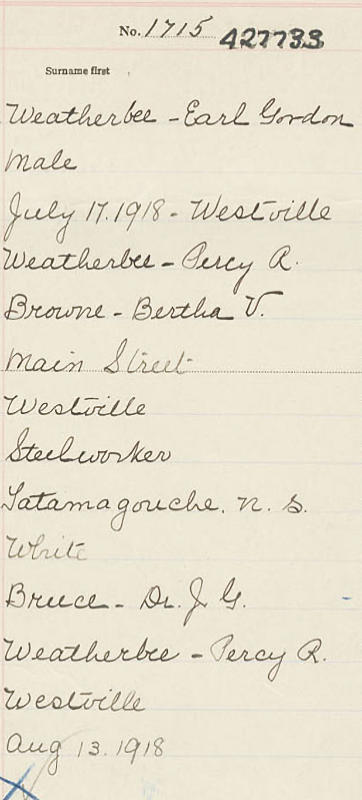 No. 1715 427733
Surname first
Weatherbee - Earl Gordon
Male
July 17.1918 - Westville
Weatherbee - Percy R.
Browne - Bertha V.
Main Street
Westville
Steelworker
Tatamagouche. N. S.
White
Bruce - Dr. J. G.
Weatherbee - Percy R.
Westville
Aug 13.1918